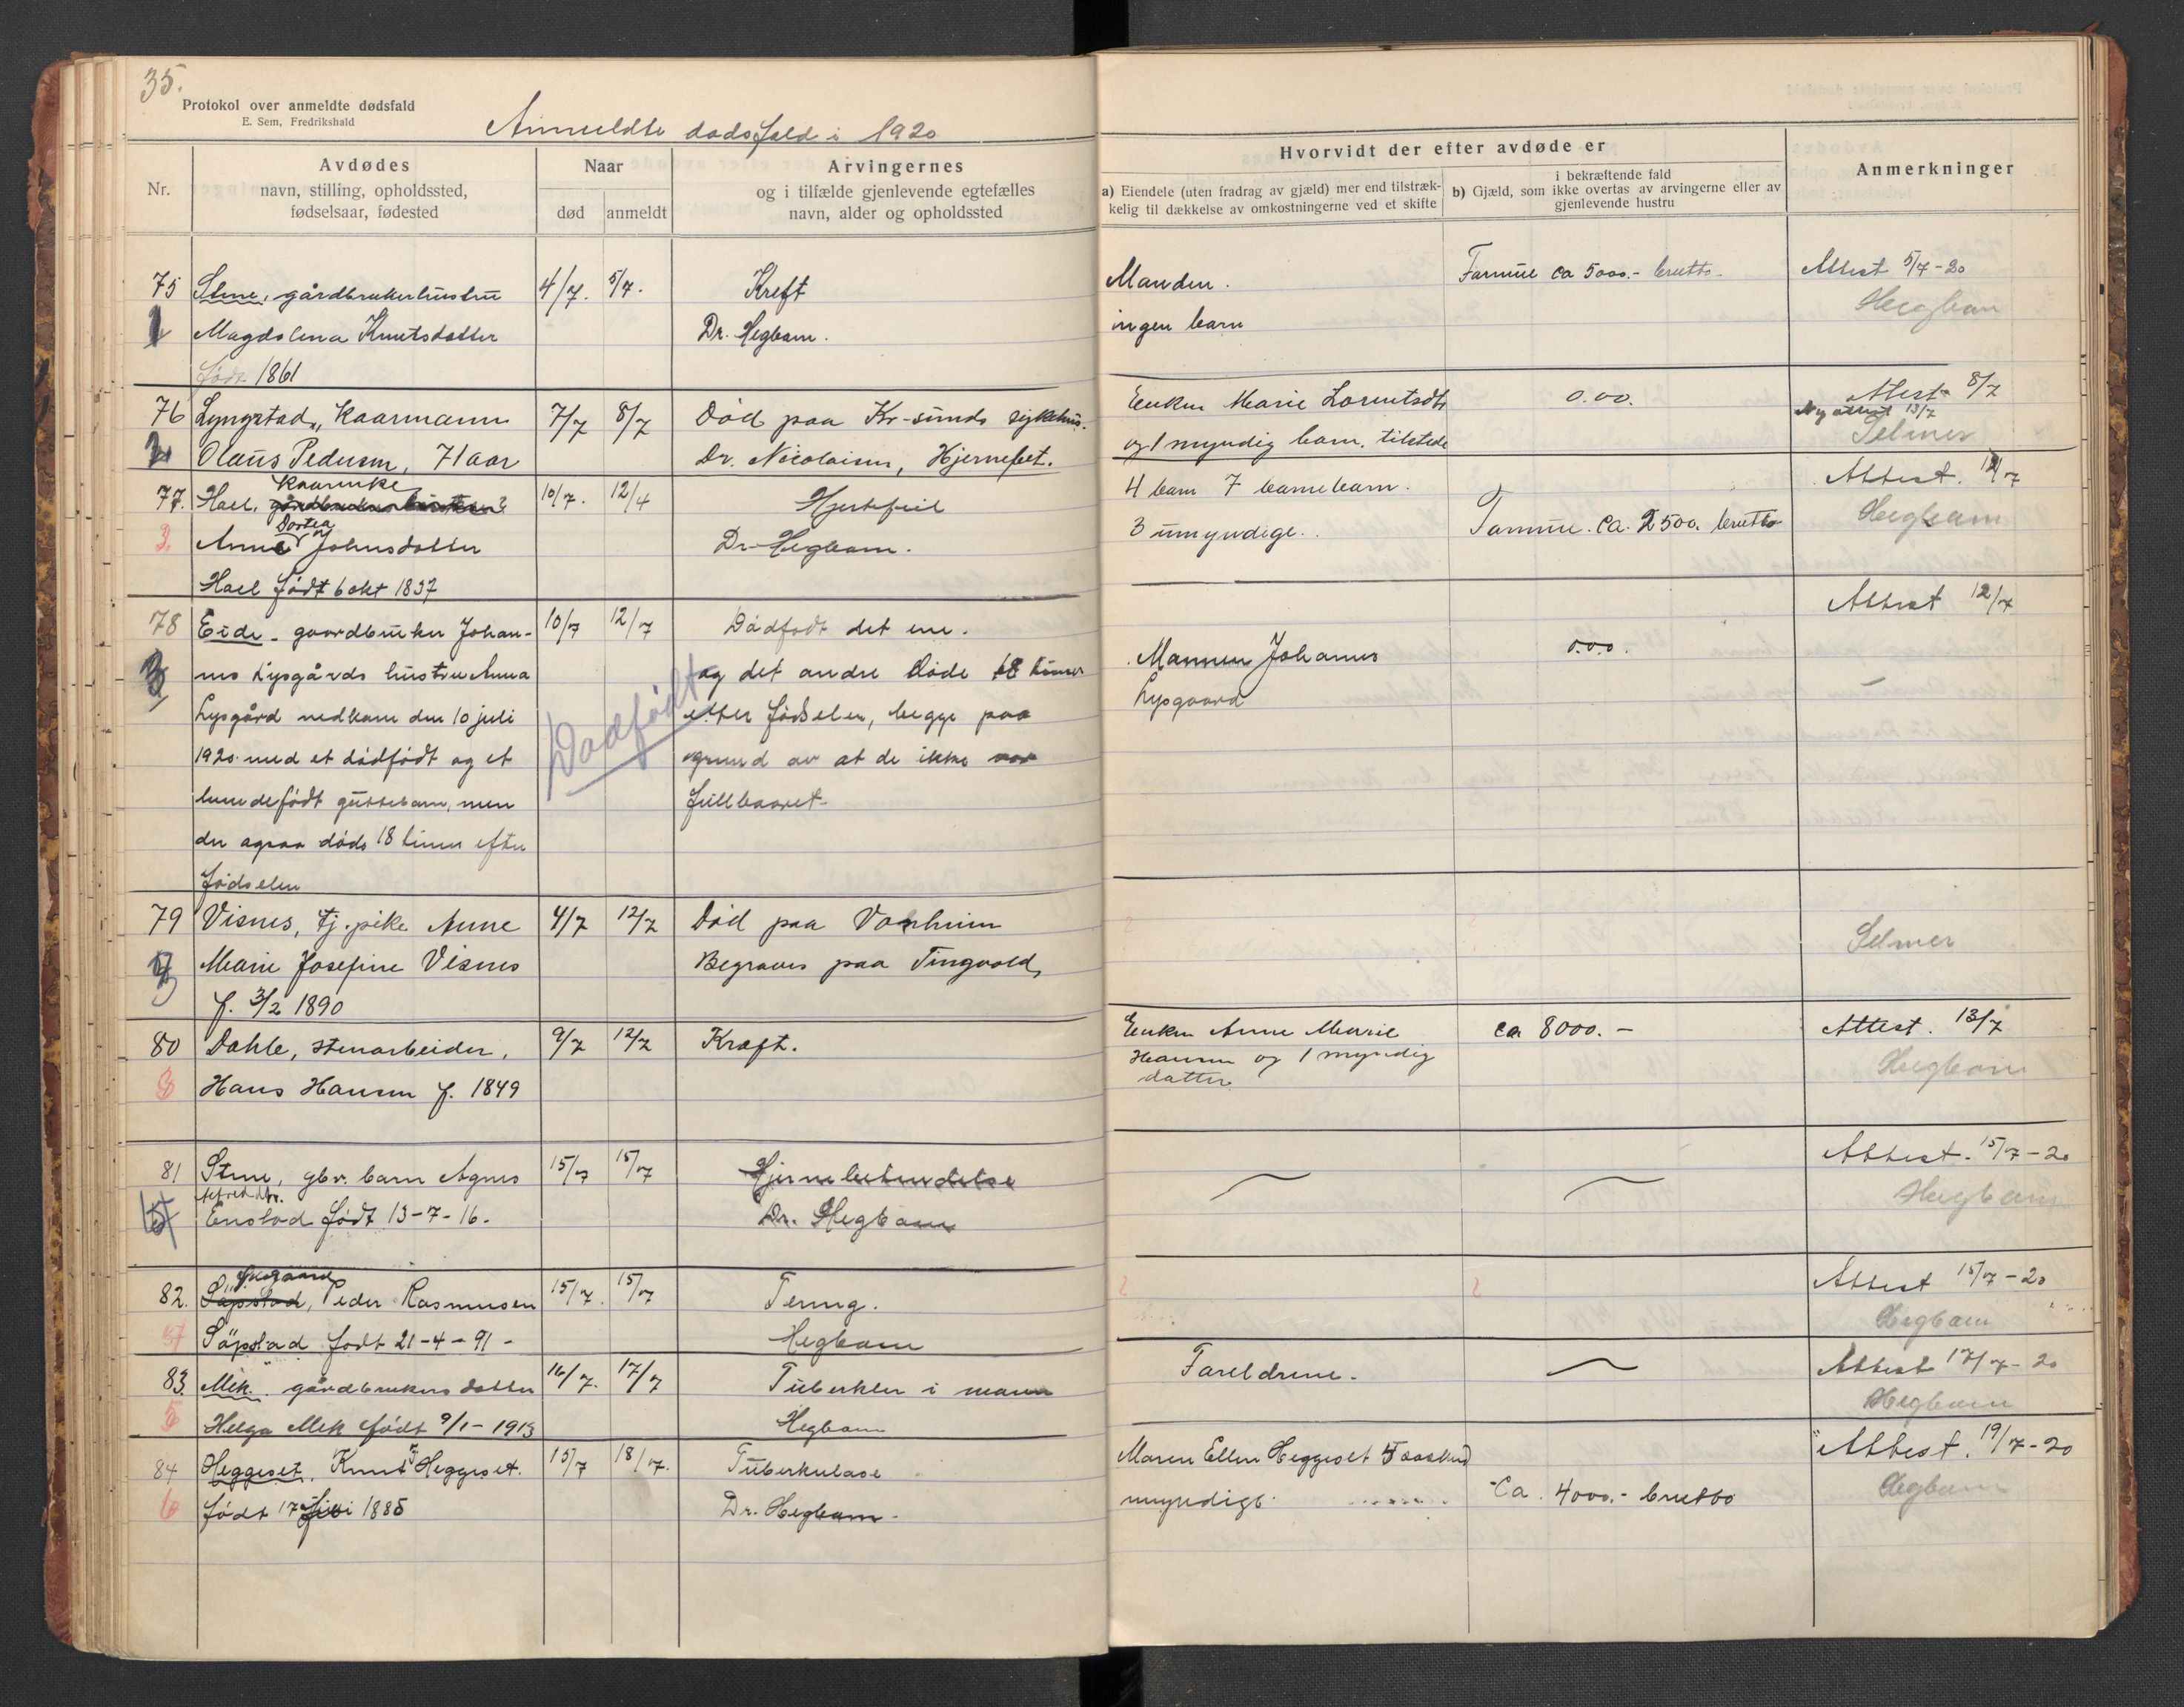 35.
Protokol over anmeldte dødsfald
E. Sem, Fredrikshald
Anmeldte dødsfald i 1920
Nr.
Avdødes
navn, stilling, opholdssted,
fødselsaar, fødested
Naar
død
anmeldt
Arvingernes
og i tilfælde gjenlevende egtefælles
navn, alder og opholdssted
Hvorvidt der efter avdøde er
a) Eiendele (uten fradrag av gjæld) mer end tilstræk-
kelig til dækkelse av omkostningerne ved et skifte
i bekræftende fald
b) Gjæld, som ikke overtas av arvingerne eller av
gjenlevende hustru
Anmerkninger
75 Stene, gårdbrukerhustru 4/7. 5/7. Kreft
Magdalena Knutsdatter Dr. Hegbom.
født 1861
Manden. Formue ca 5000.- brutto Attest 5/7-20
ingen barn Hegbom
76 Lyngstad, Kaarmann 7/7 8/7 Død paa Kr-sunds sykehus.
2 Olaus Pedersen, 71 aar Dr. Nicolaisen,
Enken Marie Lorentsdtr 0.00. Attest 8/7
Ny attest 13/7
og 1 myndig barn. tilstede Selmer
77. Hael, 10/7. 12/4 Hjertefeil
3. Anne Dortea Johnsdatter Dr Hegbom.
Hael født 6 okt 1837
4 barn 7 barnebarn. Attest. 12/7
3 umyndige. Formue. ca. 2500. brutto Hegbom
78 Eide - gaardbruker Johan- 10/7 12/7 Dødfødt det ene.
nes Lysgårds hustru Anna og det andre døde 18 timer
Lysgård nedkom den 10 juli efter fødselen, begge paa
1920 med et dødfødt og et grund av at de ikke var
levendefødt guttebarn, men fullbaaret.
der ogsaa døde 18 timer efter
fødselen
Dødfødt
Attest 12/7
Mannen Johannes 0.00.
Lysgaard
79 Visnes, tj. pike Anne 4/7 12/7 Død paa Vonheim
Marie Josefine Visnes Begraves paa Tingvold,
f. 3/2 1890
Selmer
80 Dahle, stenarbeider, 9/7 12/7 Kræft.
3 Hans Hansen f. 1849
Enken Anne Marie ca 8000.- Attest. 13/7
Hansen og 1 myndig Hegbom
datter
81 Stene, gbr. barn Agnes 15/7 15/7 Hjernebetendelse
Enstad født 13-7-16. Dr. Hegbom
Attest. 15/7-20
Hegbom
82. Søpstad, Peder Rasmusen 15/7. 15/7 Tering.
Søpstad født 21-4-91- Hegbom
Attest 15/7-20
Hegbom
83. Mek. gårdbrukers datter 16/7. 17/7 Tuberkler i maven
5 Helga Mek født 9/1-1913 Hegbom
Foreldrene. Attest 17/7-20
Hegbom
84 Heggeset, Knut Heggeset. 15/7 18/7. Tuberkulose
6 født 17 1885 Dr. Hegbom-
Maren Ellen Heggeset Attest. 19/7-20
umyndige. Ca. 4000.- brutto Hegbom